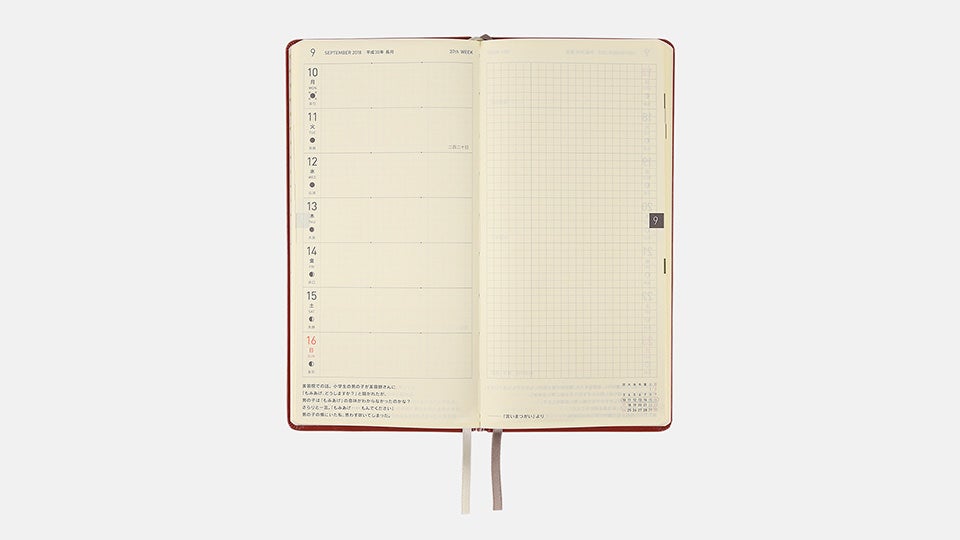 9 SEPTEMBER 2018 平成30年 長月 37th WEEK
10
月
MON
11
火
TUE
二百二十日
12
水
WED
13
木
THU
14
金
FRI
15
土
SAT
16
日
SUN
美容院での話。小学生の男の子が美容師さんに
「もみあげ、どうしますか？」と聞かれたが、
男の子は「もみあげ」の意味がわからなかったのかな？
さらりと一言。「もみあげ……もんでください」
男の子の横にいた私、思わず吹いてしまった。
『言いまつがい』より
9